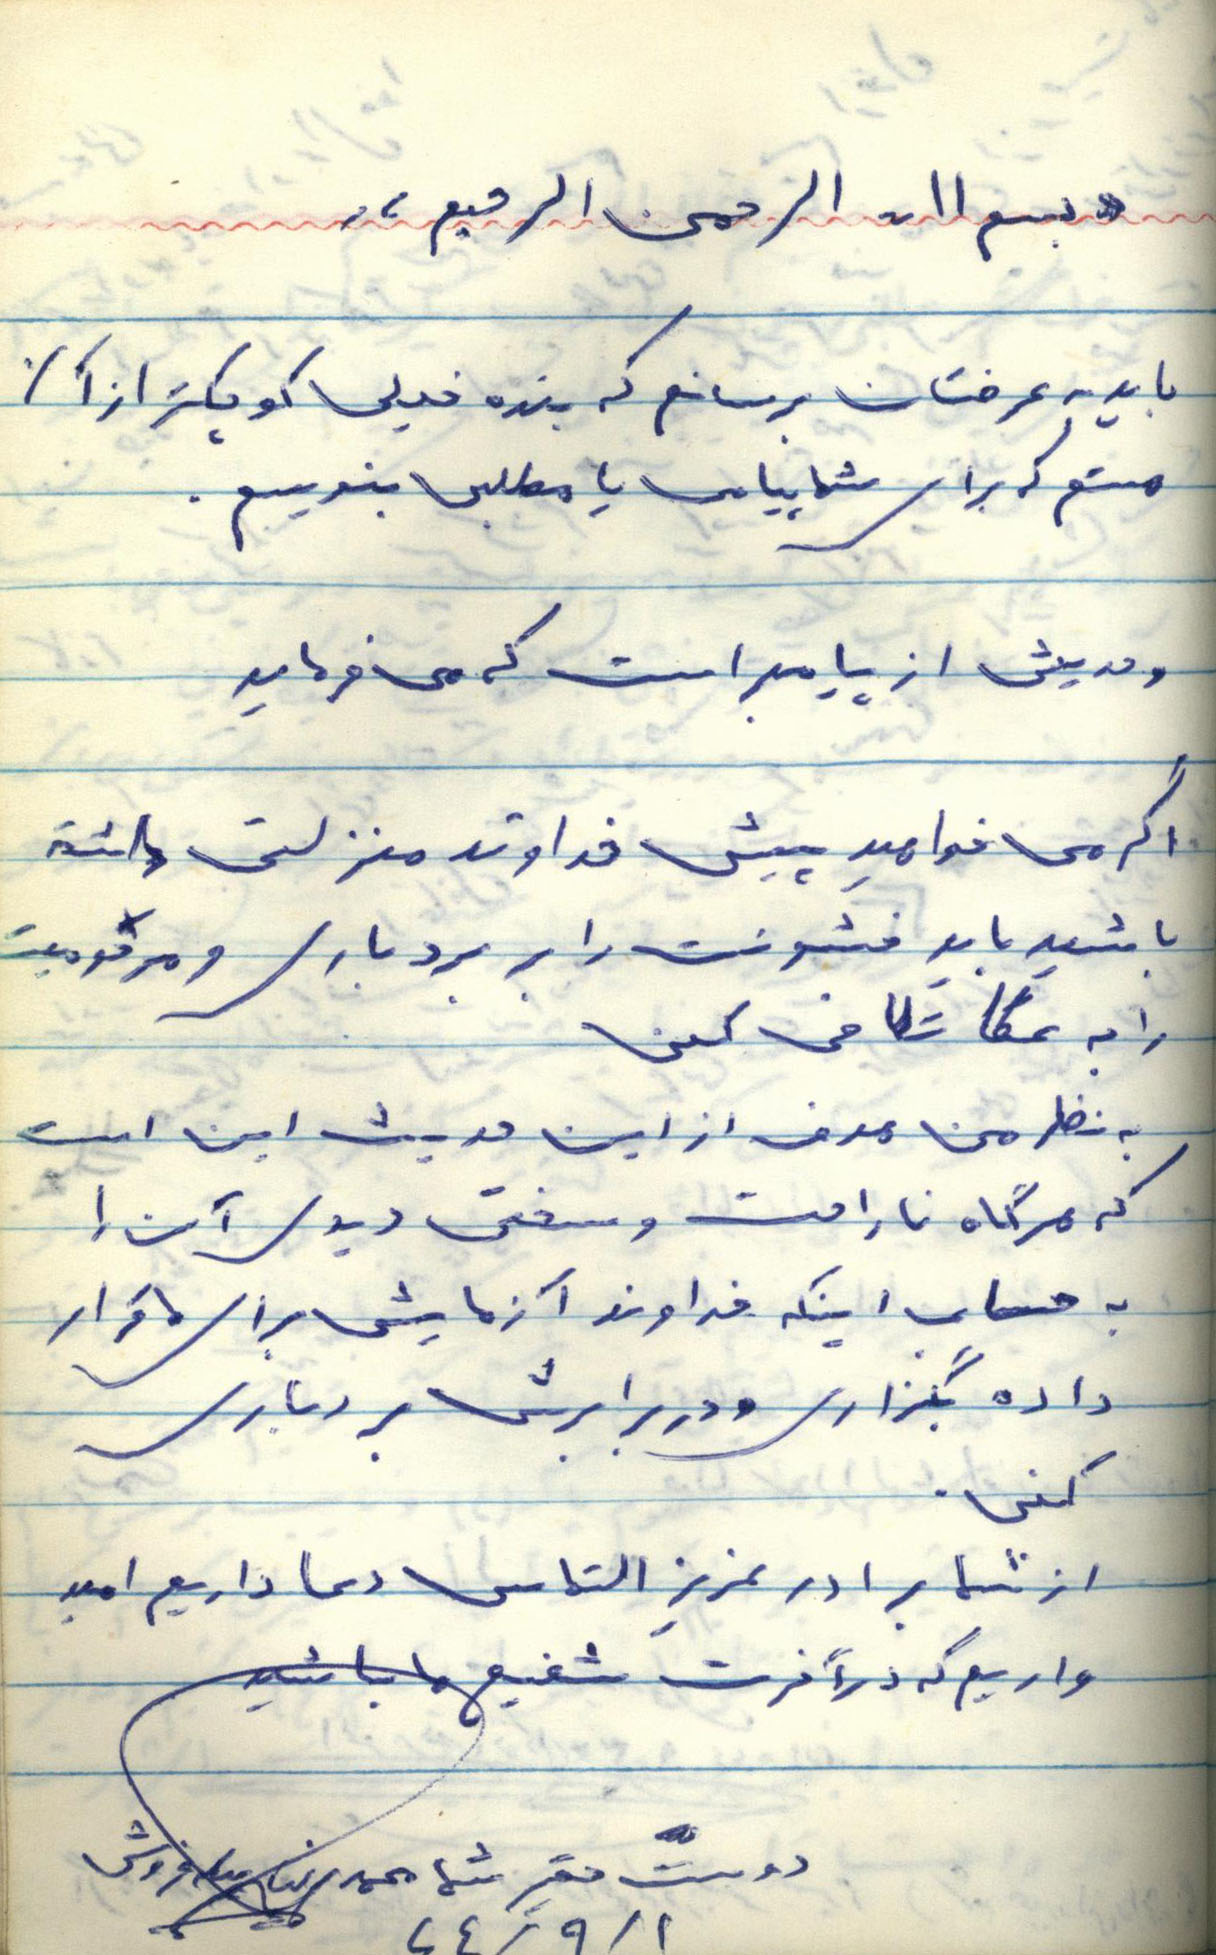 «بسم الله الرحمن الرحیم»
باید به عرضتان برسانم که بنده خیلی کوچکتر از آن
هستم که برای شما پیامی یا مطلبی بنویسم.
حدیثی از پیامبر است که می فرماید
اگر می خواهید پیش خداوند منزلتی داشته
باشید باید خشونت را بر بردباری و محرومیت
را به عطا تلافی کنی
به نظر من هدف از این حدیث این است
که هرگاه ناراحت و سختی دیدی آن را
به حساب اینکه خداوند آزمایشی برای ما قرار
داده بگزاری و در برابرش بردباری
کنی.
از شما برادر عزیز التماس دعا داریم امید
داریم که در آخرت شفیع ما باشید
دوست حقیر شما محمد رضا
۶۴/۹/۱